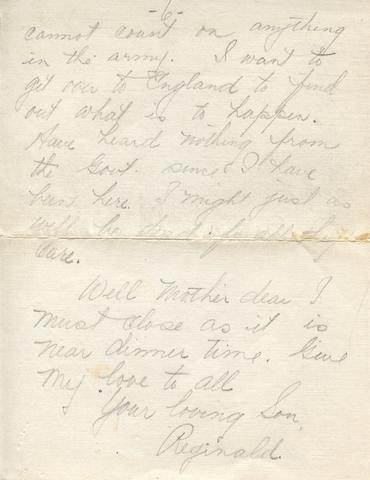 -6-
cannot count on anything
in the army. I want to
get over to England to find
out what is to happen.
Have heard nothing from
the Govt. since I have
been here. I might just as
well be dead for all they
care.
Well Mother dear I
must close as it is
near dinner time. Give
my love to all
Your loving Son,
Reginald.